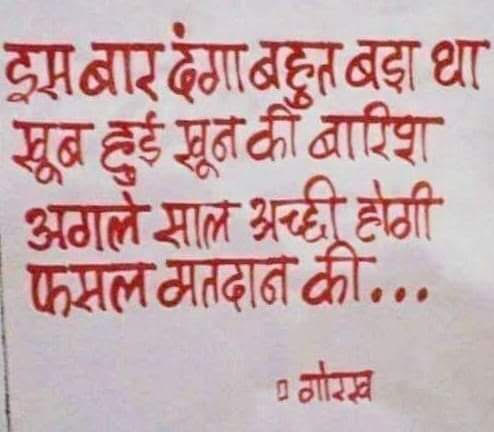 इस बार दंगा बहुत बड़ा था
खूब हुई खून की बारिश
अगले साल अच्छी होगी
फसल मतदान की...
▫ गोरख